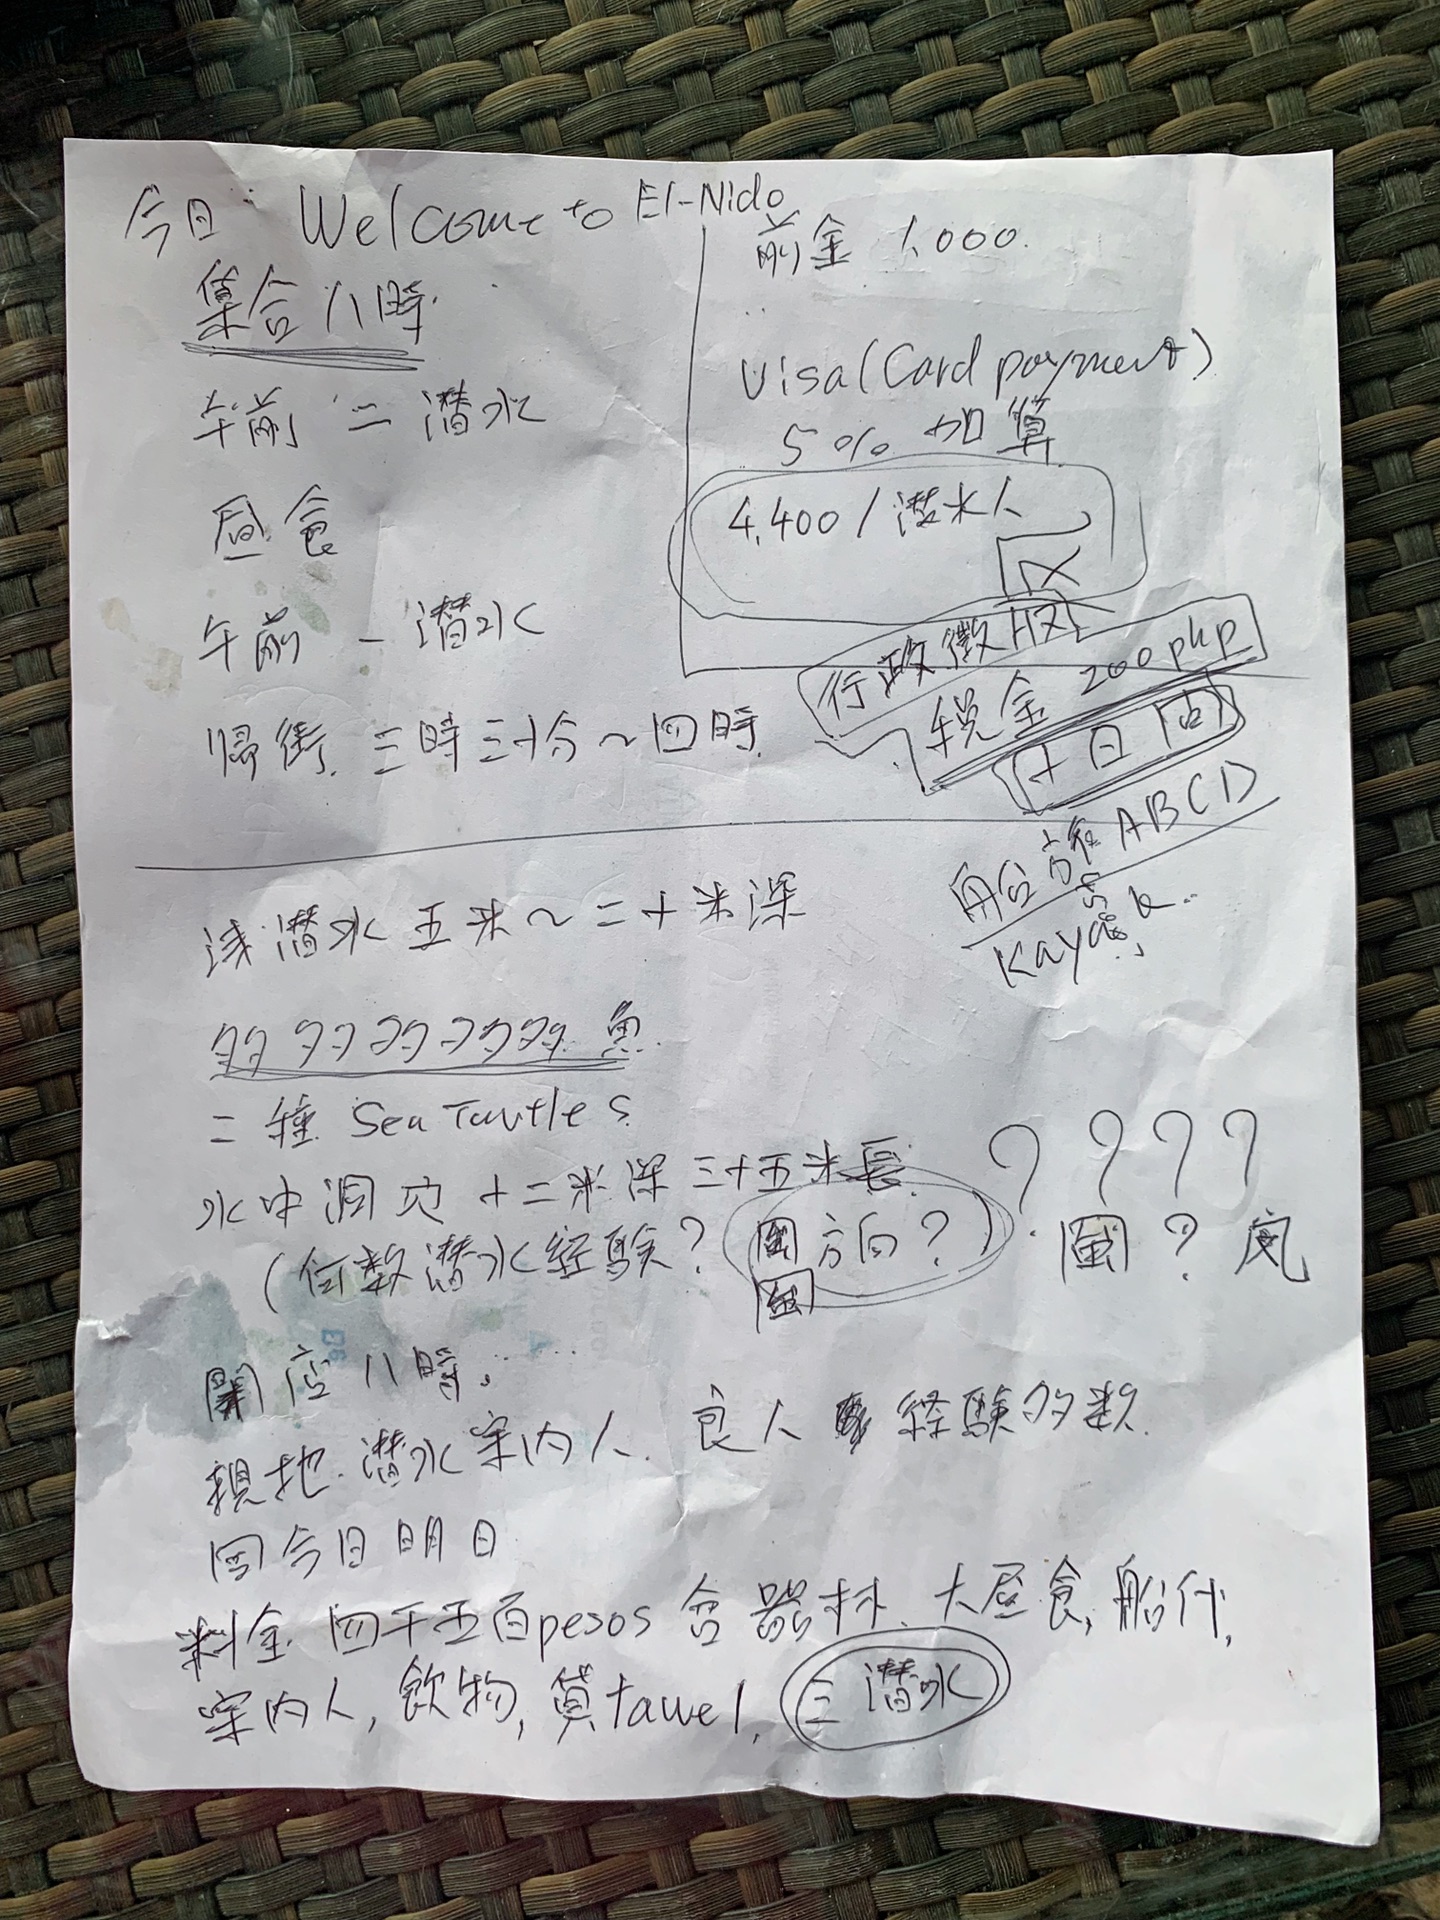 今日 Welcome to El-Nido
集合 八時
午前 二 潜水
昼食
午前 一 潜水
帰街 三時三十分〜四時
前金 1,000.
Visa (Card payment)
5% 加算
4,400 / 潜水人
行政徴収
税金 200 php
十日間
船 ABCD
Kayak
浅潜水 五米〜二十米深
多多多多多多多 魚
二種 Sea Turtles
水中洞穴 十二米深 三十五米長
(何数潜水経験? 方向? )
? ? ? ?
?
開店八時。
現地 潜水案内人. 良人 経験多数.
今日明日
料金 四千五百pesos 含 器材、大昼食, 船代,
案内人, 飲物, tawel, 三潜水